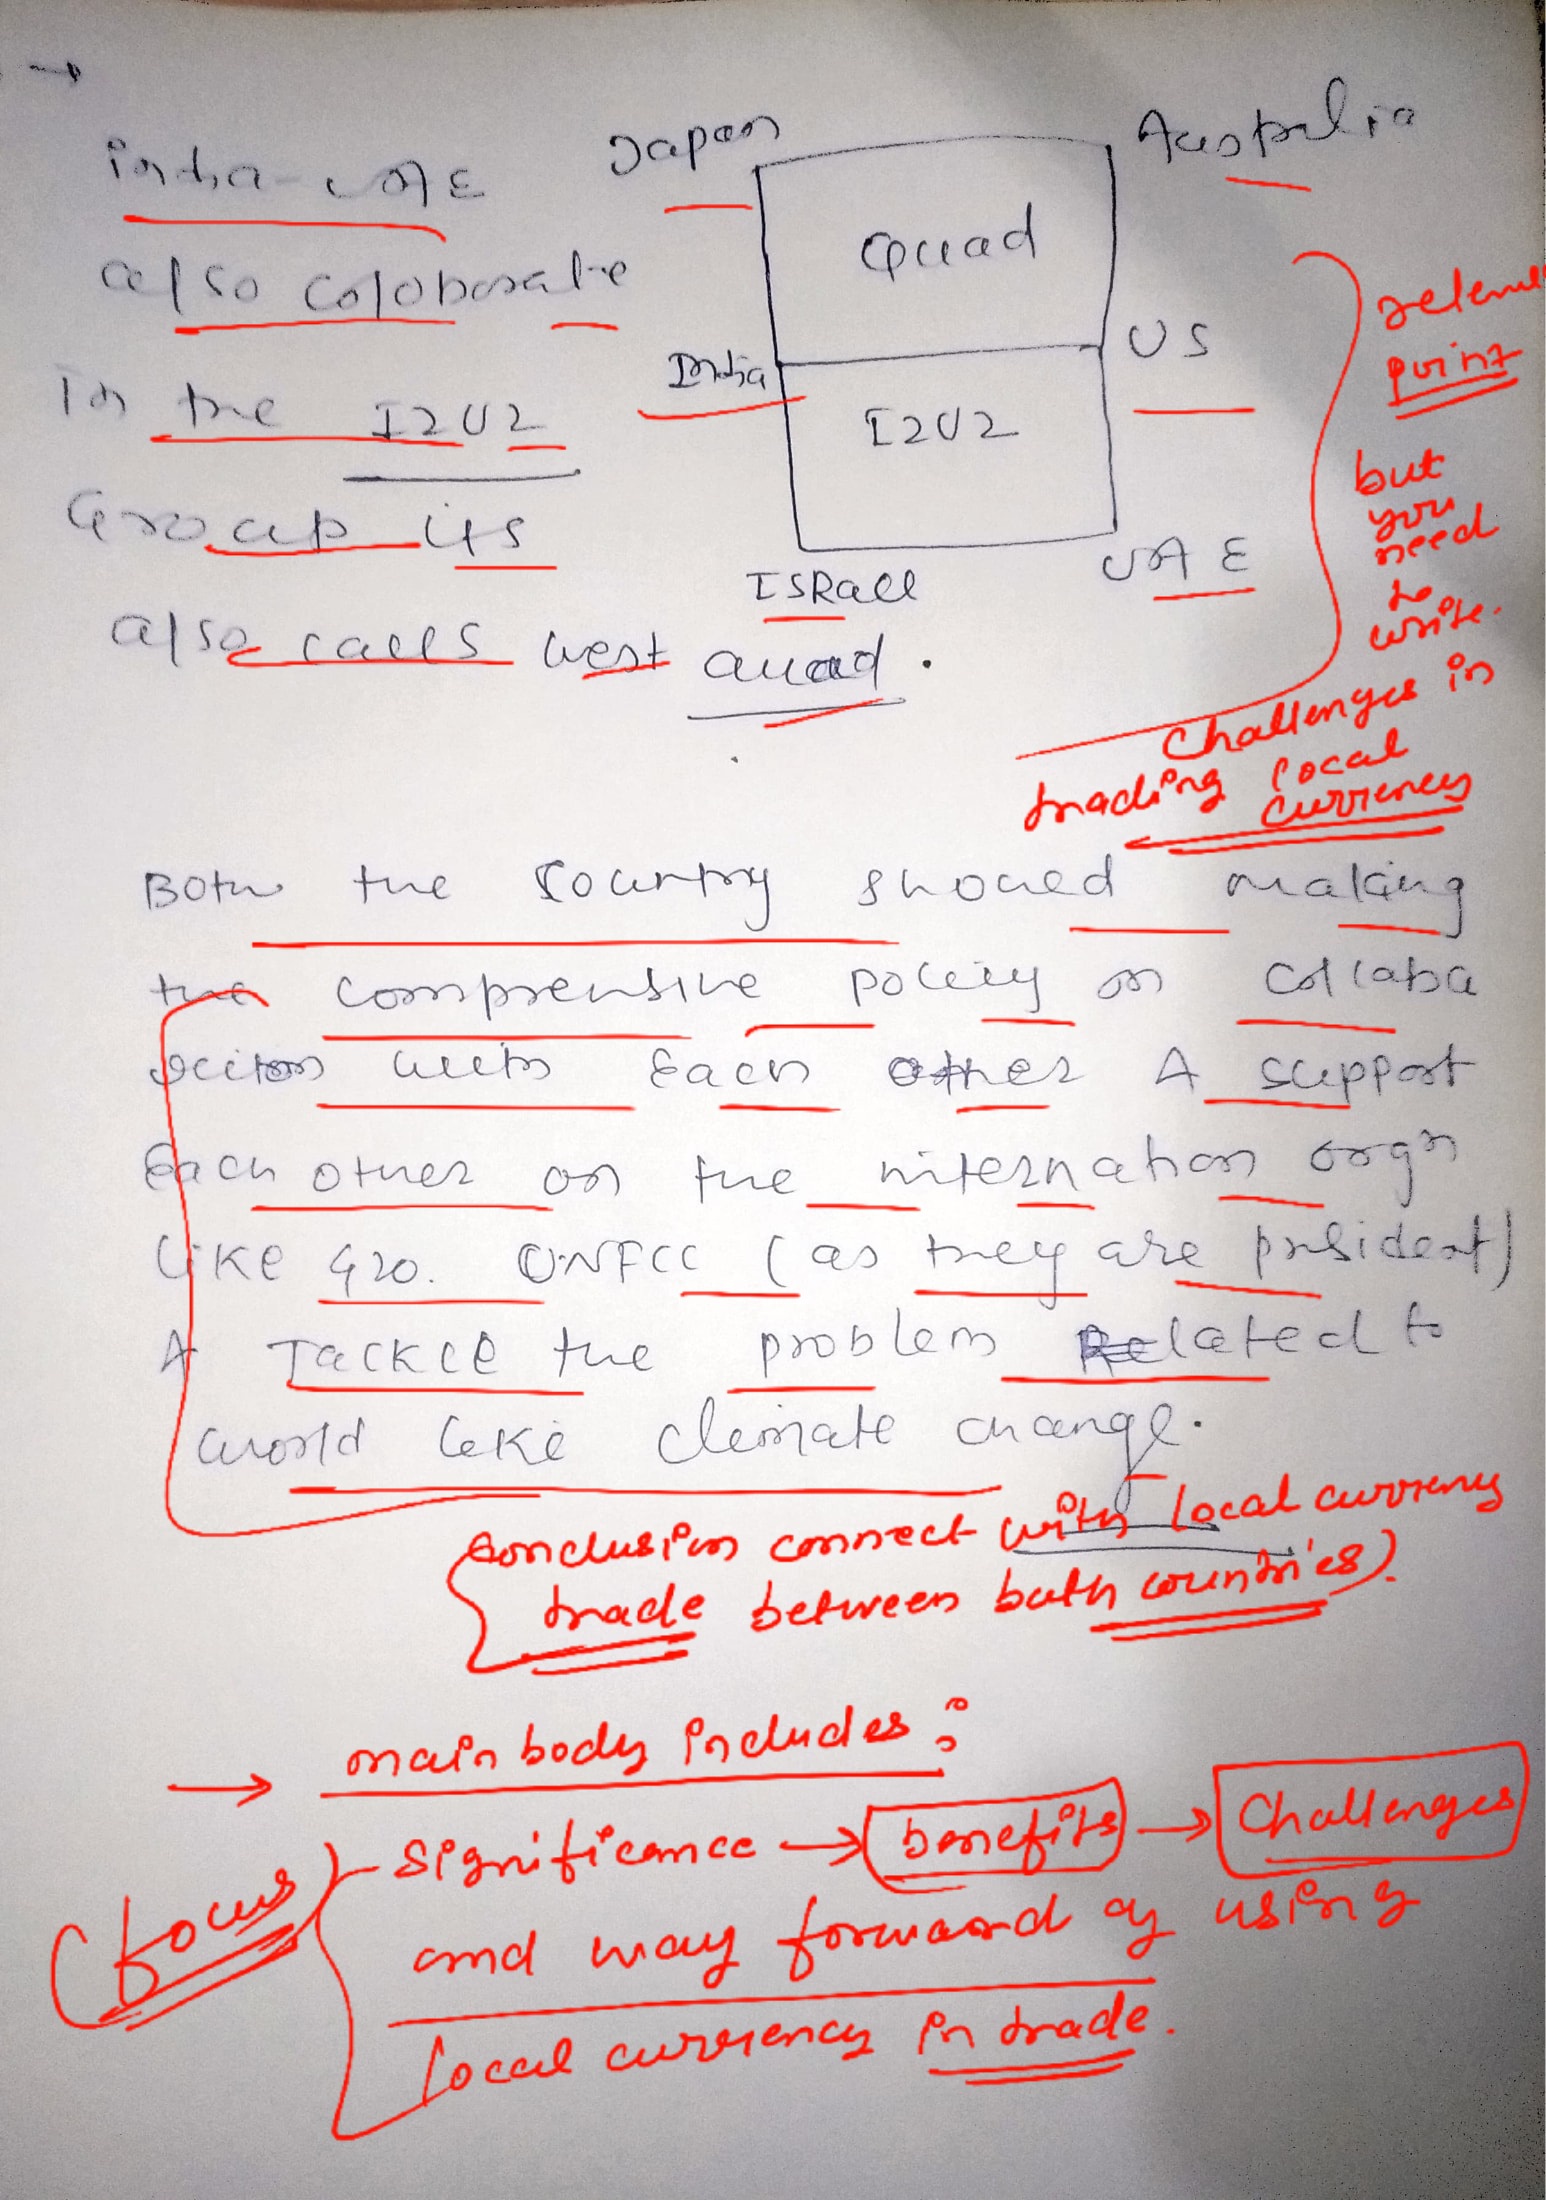 India-UAE
also coloborate
In the I2U2
Group its
also calls west Quad.
Japan
Australia
Quad
India
US
I2U2
ISRael
UAE
point
but
you
need
to
write.
Challenges in
trading local
currency
Both the Country should making
the comprensive policy on collaba
with Each other A support
Each other on the internation orgn
Like G20. UNFCC (as they are president)
A Tackle the problem Related to
world like climate change.
Conclusion connect with local currency
trade between both countries).
→ main body includes:
focus
Significance → benefits → Challenges
and way forward of using
local currency in trade.